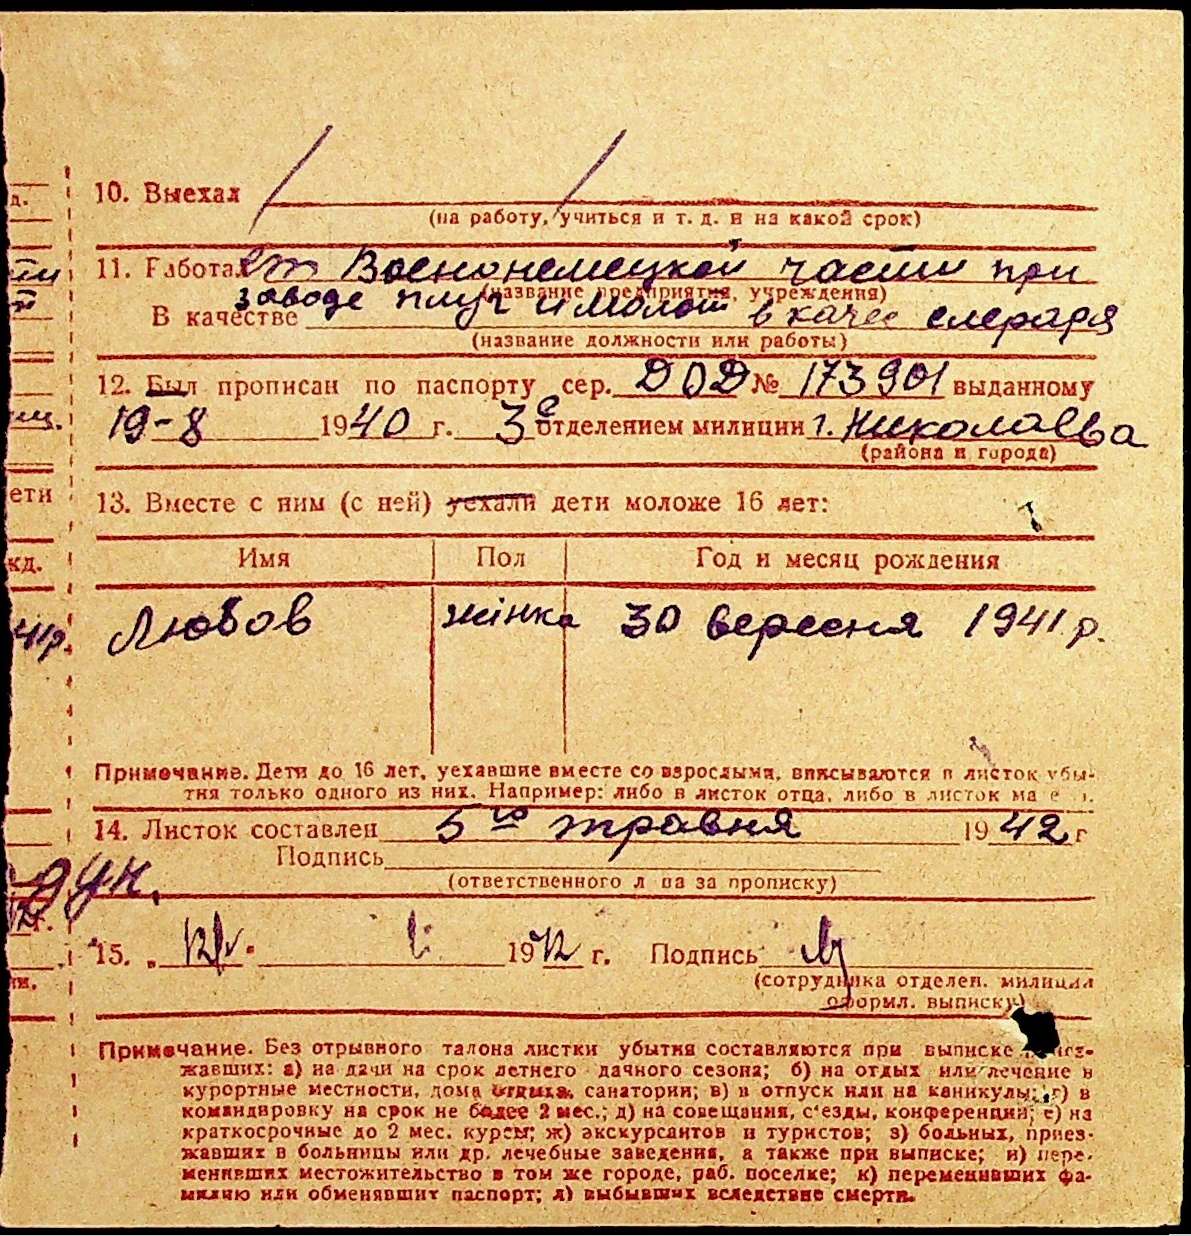 10. Выехал
(на работу, учиться и т. д. и на какой срок)
11. Работает Военонемецкой части при
(название предприятия, учреждения)
заводе плуг и молот в качес слесаря
В качестве
(название должности или работы)
12. Был прописан по паспорту сер. ДОД № 173901 выданному
19-8 1940 г. 3е отделением милиции г. Николаева
(района и города)
13. Вместе с ним (с ней) уехали дети моложе 16 лет:
Имя Пол Год и месяц рождения
Любов жінка 30 вересня 1941 р.
Примечание. Дети до 16 лет, уехавшие вместе со взрослыми, вписываются в листок убы-
тия только одного из них. Например: либо в листок отца, либо в листок ма
14. Листок составлен 5го травня 1942 г
Подпись
(ответственного л ца за прописку)
15. 1942 г. Подпись
(сотрудника отделен. милиции
оформл. выписку)
Примечание. Без отрывного талона листки убытия составляются при выписке
жавших: а) на дачи на срок летнего дачного сезона; б) на отдых или лечение в
курортные местности, дома отдыха, санатории; в) в отпуск или на каникулы; г) в
командировку на срок не более 2 мес.; д) на совещания, с'езды, конференции; е) на
краткосрочные до 2 мес. курсы; ж) экскурсантов и туристов; з) больных, приез-
жавших в больницы или др. лечебные заведения, а также при выписке; и) пере-
менивших местожительство в том же городе, раб. поселке; к) переменивших фа-
милию или обменявших паспорт; л) выбывших вследствие смерти.